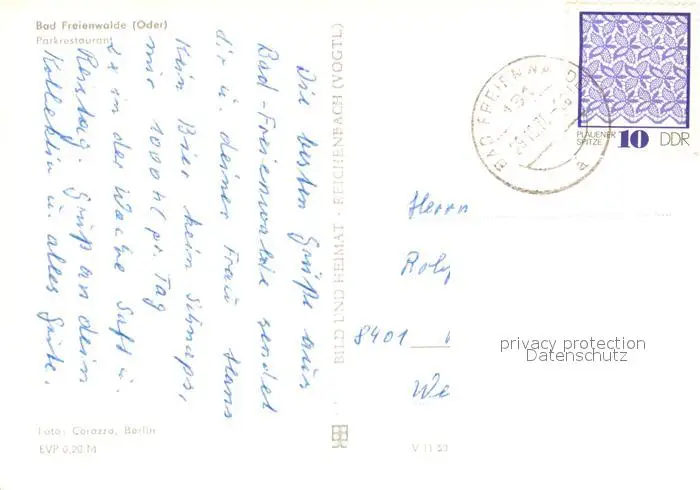 Bad Freienwalde (Oder)
Parkrestaurant
Die besten Grüße aus
Bad-Freienwalde sendet
dir u. deiner Frau Hans
Kein Bier kein Schnaps,
nur 1000 hl pr. Tag
2x in der Woche Saft u.
Reistag. Gruß an dein
Kollektiv u. alles Gute.
Foto: Corazza, Berlin
EVP 0,20 M
BILD UND HEIMAT · REICHENBACH (VOGTL)
V 11 50
BAD FREIENWALDE
131
a
PLAUENER
SPITZE
10 DDR
Herrn
8401
We
privacy protection
Datenschutz